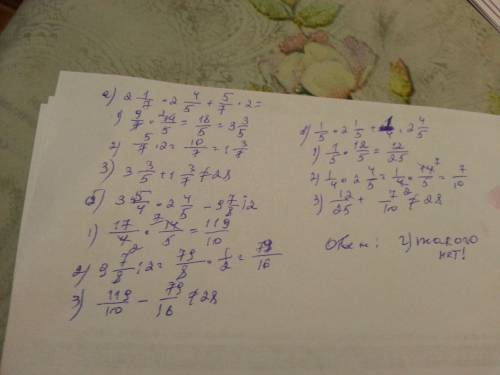 а) 2 1/7 · 2 4/5 + 5/7 · 2 =
1) 9/7 · 14/5 = 18/5 = 3 3/5
2) 5/7 · 2 = 10/7 = 1 3/7
3) 3 3/5 + 1 3/7 ≠ 28
б) 3 5/4 · 2 4/5 - 9 7/8 : 2
1) 17/4 · 14/5 = 119/10
2) 9 7/8 : 2 = 79/8 · 1/2 = 79/16
3) 119/10 - 79/16 ≠ 28
в) 1/5 · 2 1/5 = · 2 4/5
1) 1/5 · 12/5 = 12/25
2) 1/4 · 2 4/5 = 1/4 · 14/5 = 7/10
3) 12/25 + 7/10 ≠ 28
г) такого нет!